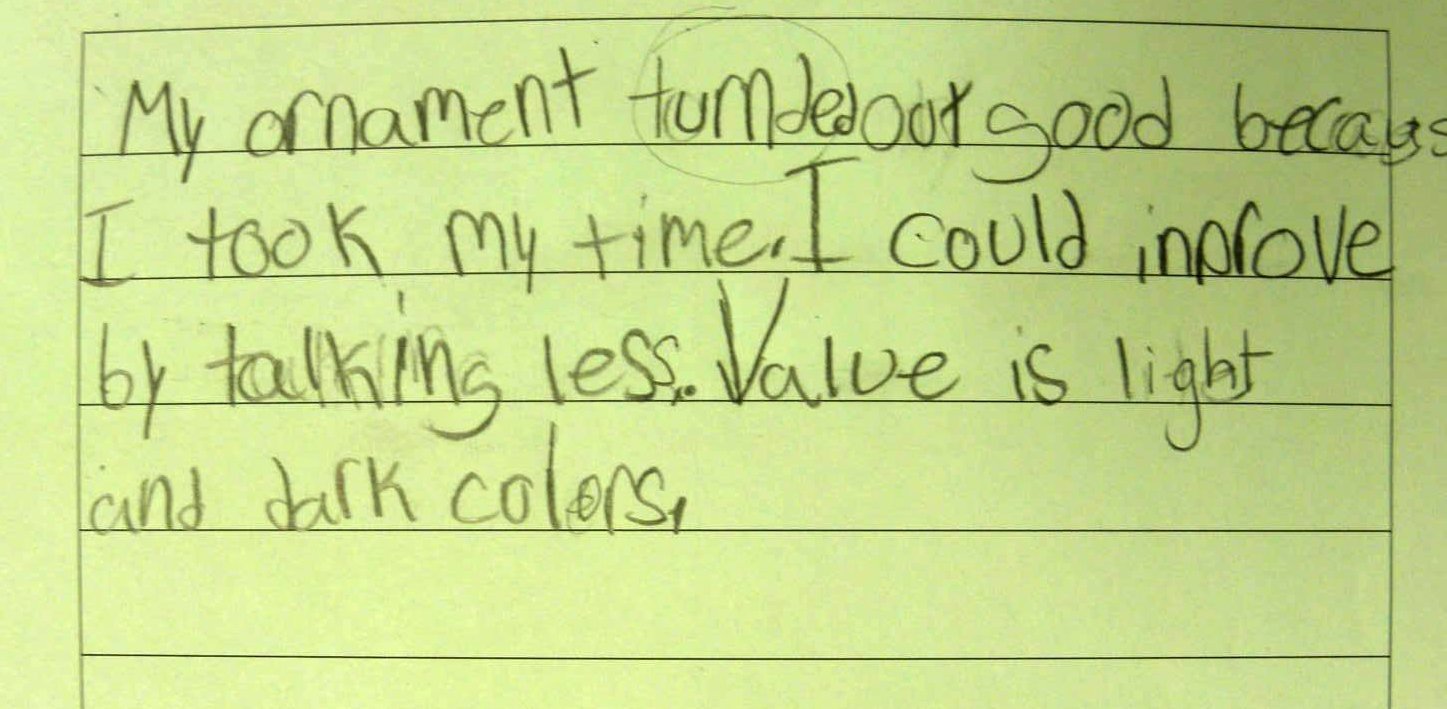 My ornament turnded out good becaus
I took my time. I could inprove
by talking less. Value is light
and dark colors.